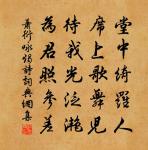 堂中綺羅人
席上歌舞兒
待我光泛灩
為君照參差
蕭衍詠燭詩詞典網集